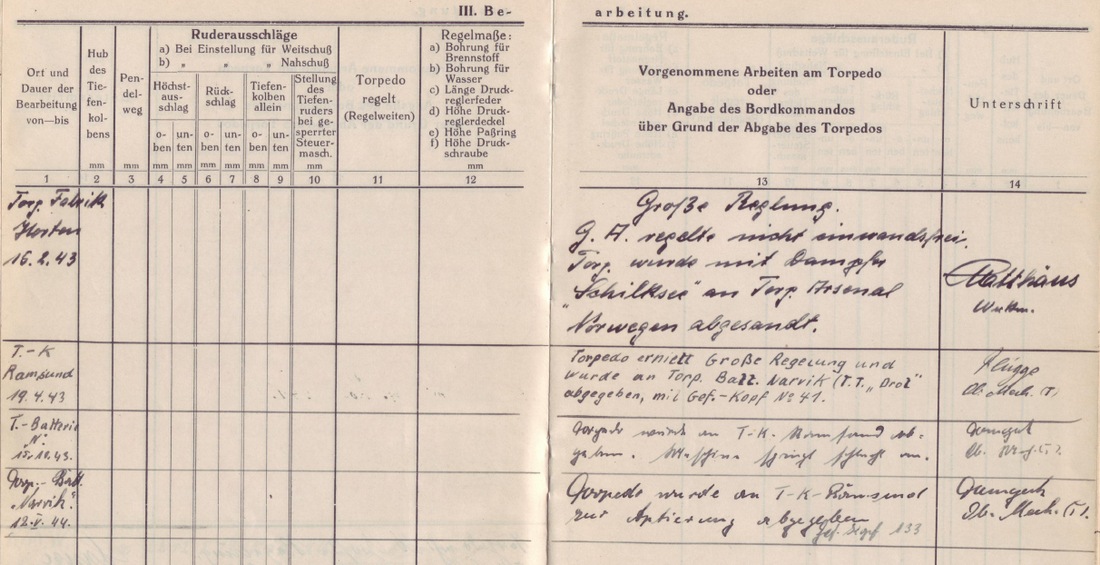 III. Be-
arbeitung.
Ort und
Dauer der
Bearbeitung
von—bis
Hub
des
Tie-
fen-
kol-
bens
mm
Pen-
del-
weg
mm
Ruderausschläge
a) Bei Einstellung für Weitschuß
b) „ „ „ Nahschuß
Höchst-
aus-
schlag
Rück-
schlag
Tiefen-
kolben
allein
Stellung
des
Tiefen-
ruders
bei ge-
sperrter
Steuer-
masch.
mm
o-
ben
mm
un-
ten
mm
o-
ben
mm
un-
ten
mm
o-
ben
mm
un-
ten
mm
Torpedo
regelt
(Regelweiten)
Regelmaße:
a) Bohrung für
Brennstoff
b) Bohrung für
Wasser
c) Länge Druck-
reglerfeder
d) Höhe Druck-
regleredeckel
e) Höhe Paßring
f) Höhe Druck-
schraube
mm
Vorgenommene Arbeiten am Torpedo
oder
Angabe des Bordkommandos
über Grund der Abgabe des Torpedos
Unterschrift
1 2 3 4 5 6 7 8 9 10 11 12 13 14
Torp. Fabrik
Horten
16.2.43
Große Reglung.
G. A. regelte nicht einwandsfrei.
Torp. wurde mit Dampfer
„Schilksee" an Torp. Arsenal
Norwegen abgesandt.
Matthäus
T.-K
Ramsund
19.4.43
Torpedo erhielt Große Regelung und
wurde an Torp. Batt. Narvik (T.T. „Drot"
abgegeben, mit Gef.-Kopf No 41.
Flügge
Ob. Mech. (T)
T.-Batterie
„N."
15.10.43.
Torpedo wurde an T-K-Ramsund ab-
geben. Maschine springt schlecht an.
Torp.-Batt.
„Narvik".
12.V.44.
Torpedo wurde an T-K-Ramsund
zur Aptierung abgegeben
Gef. Kopf 133
Ob. Mech. (T).